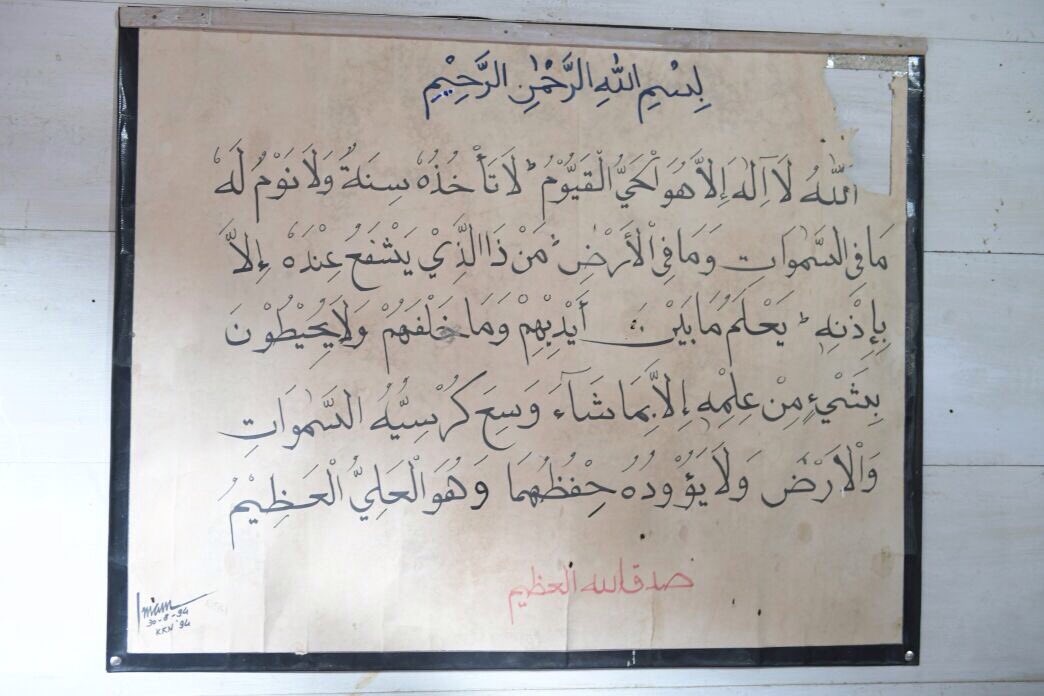 بِسْمِ اللّٰهِ الرَّحْمٰنِ الرَّحِيْمِ
اَللّٰهُ لَا اِلٰهَ اِلَّا هُوَ الْحَيُّ الْقَيُّوْمُ ۚ لَا تَأْخُذُهٗ سِنَةٌ وَلَا نَوْمٌ لَهٗ
مَا فِي السَّمٰوَاتِ وَمَا فِي الْأَرْضِ ۗ مَنْ ذَا الَّذِيْ يَشْفَعُ عِنْدَهٗ إِلَّا
بِإِذْنِهٖ ۚ يَعْلَمُ مَا بَيْنَ أَيْدِيْهِمْ وَمَا خَلْفَهُمْ وَلَا يُحِيْطُوْنَ
بِشَيْءٍ مِنْ عِلْمِهٖ إِلَّا بِمَا شَآءَ وَسِعَ كُرْسِيُّهُ السَّمٰوَاتِ
وَالْاَرْضَ وَلَا يَؤُوْدُهٗ حِفْظُهُمَا وَهُوَ الْعَلِيُّ الْعَظِيْمُ
صدق الله العظيم
Imam
30-8-94
KKN '94